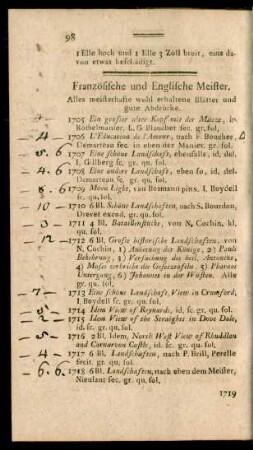 98
1 Elle hoch und 1 Elle 3 Zoll breit, eine da-
von etwas beschädigt.
Französische und Englische Meister.
Alles meisterhafte wohl erhaltene Blätter und
gute Abdrücke.
4 1705 Ein grosser alter Kopf mit der Mütze, le
Rothelmanier, L. G. Blaucher sec. gr. fol.
4 1706 L'Education de l'Amour, nach F. Boucher,
Demarteau sc. in eben der Manier. gr. fol.
5. 6 1707 Eine schöne Landschaft, ebenfalls, id. del.
I. Gillberg sc. gr. qu. fol.
4 1708 Eine andere Landschaft, eben so, id. del.
Demarteau sc. gr. qu. fol.
8. 6 1709 Moon Light, van Bosmann pinx. I. Boydell
sc. gr. qu. fol.
1710 6 Bl. Schöne Landschaften, nach S. Bourdon,
Drevet exend. gr. qu. fol.
3 1711 4 Bl. Bataillenstücke, von N. Cochin, kl.
qu. fol.
12 1712 6 Bl. Grosse historische Landschaften, von
N. Cochin, 1) Anbetung der Könige, 2) Pauli
Bekehrung, 3) Versuchung des heil. Antonius,
4) Moses zerbricht die Gesetztafeln. 5) Pharaos
Untergang, 6) Johannes in der Wüsten. Alles
gr. qu. fol.
7 1713 Eine schöne Landschaft, View in Crumford,
I. Boydell sc. gr. qu. fol.
5 1714 Idem View of Reynards, id. sc. gr. qu. fol.
2 1715 Idem View of the Straighes in Dove Dale,
id. sc. gr. qu. fol.
5 1716 2 Bl. Idem, North West View of Rhuddlan
and Carnarvon Castle, id. sc. gr. qu. fol.
4 1717 6 Bl. Landschaften, nach P. Brill, Perelle
fecit. gr. qu. fol.
6. 6 1718 6 Bl. Landschaften, nach eben dem Meister,
Nieulant sec. gr. qu. fol.
1719